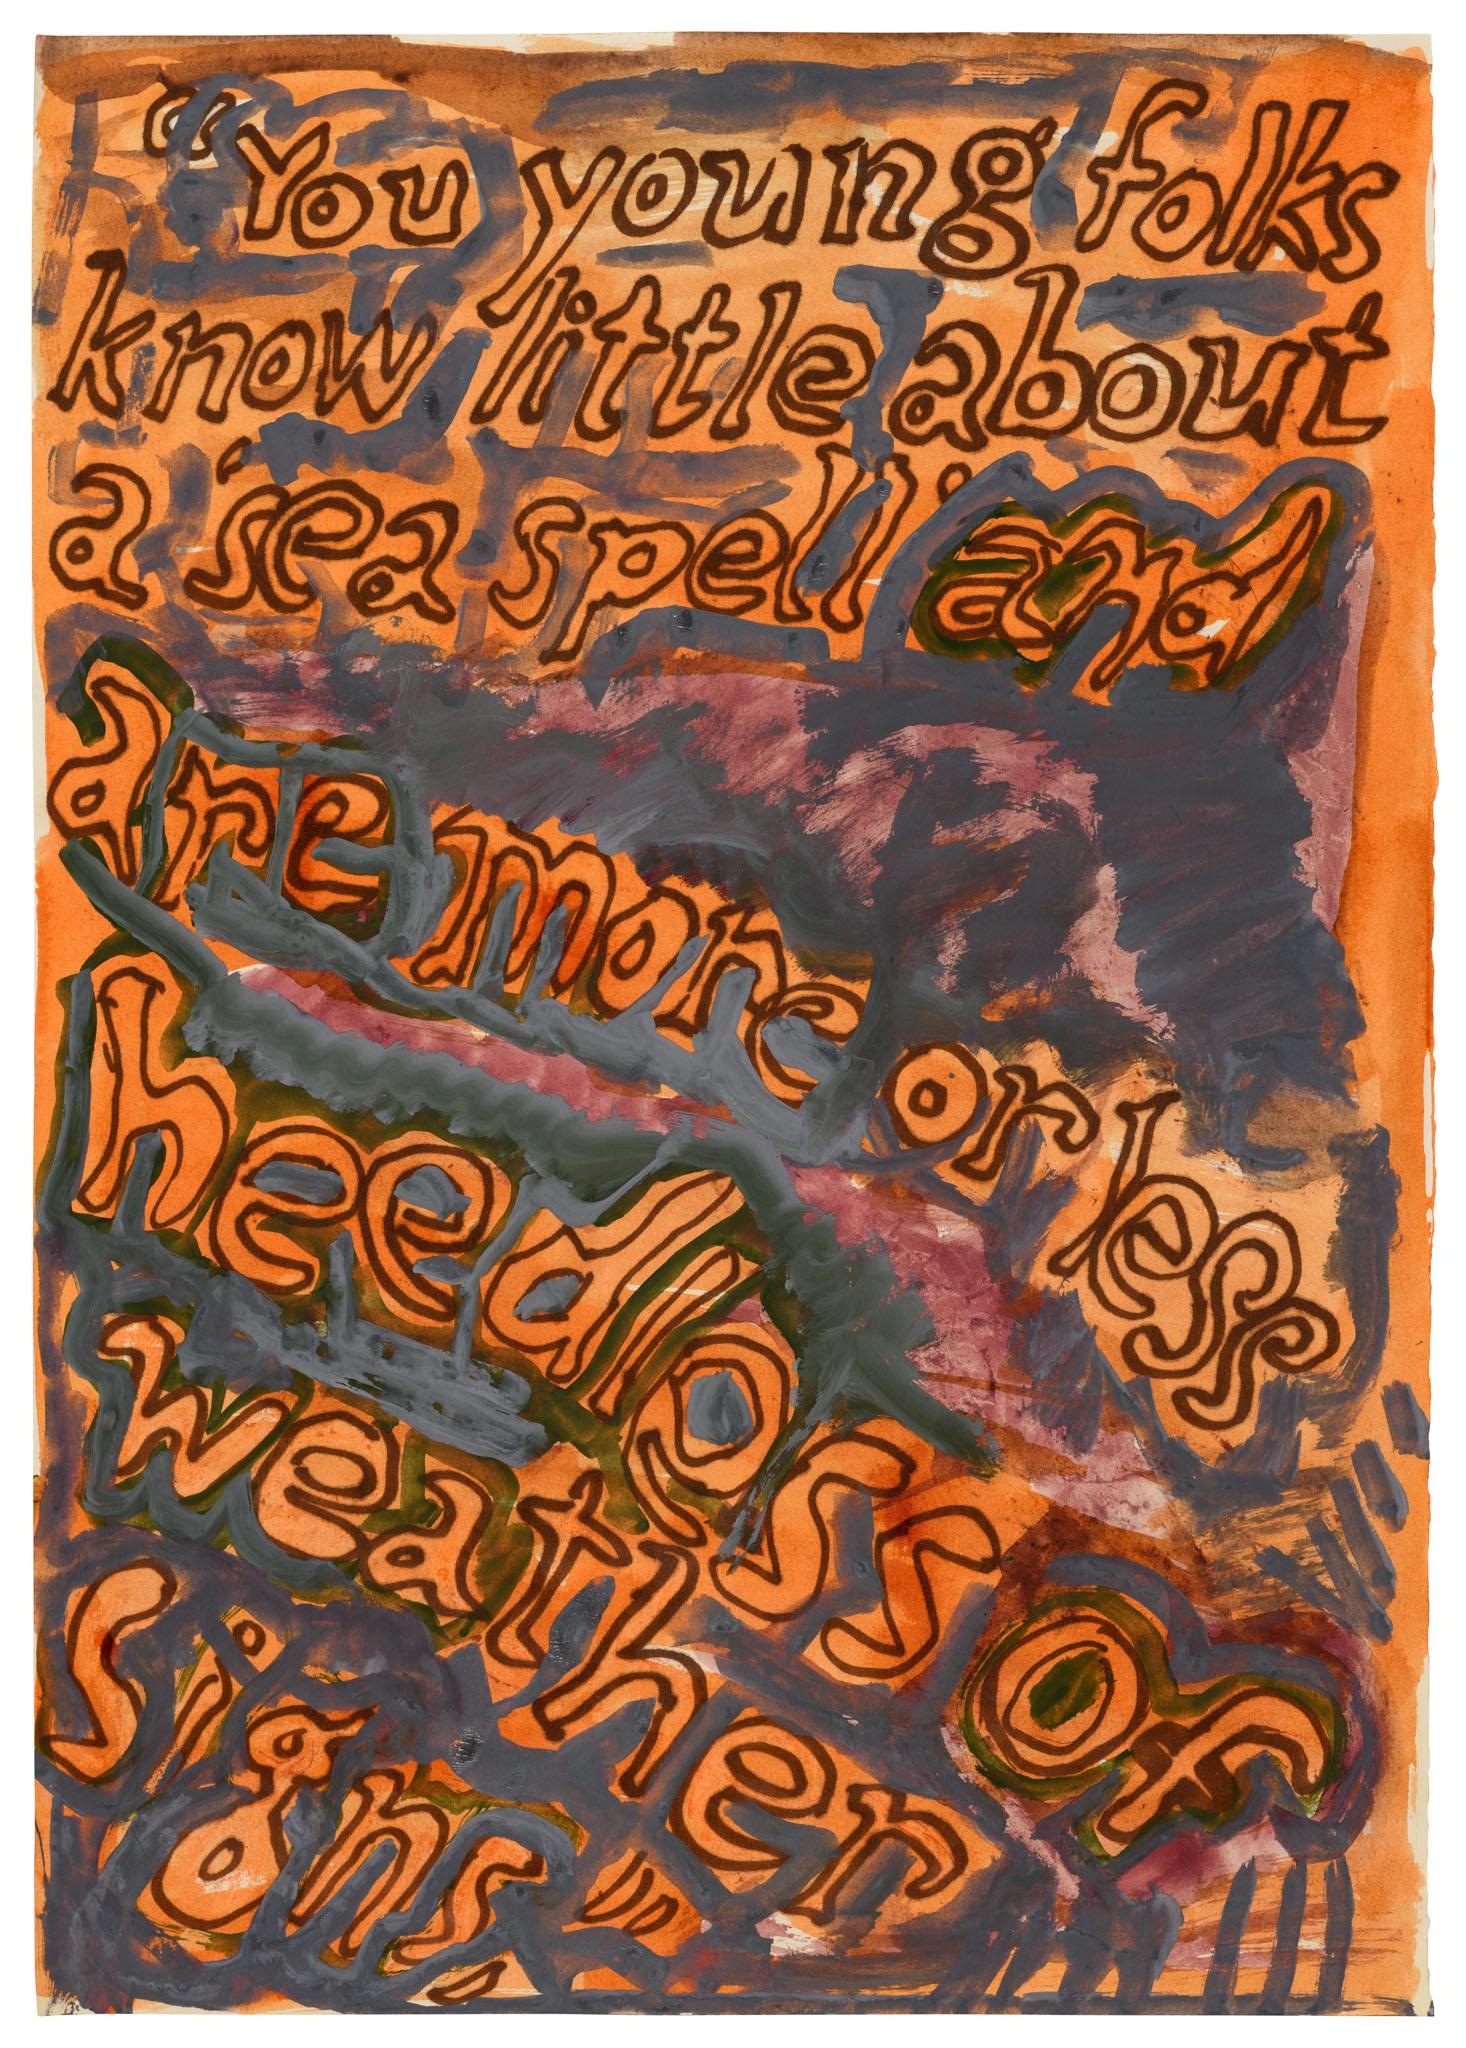 "You young folks
know little about
a 'sea spell' and
are more or less
heedless of
weather
signs,"